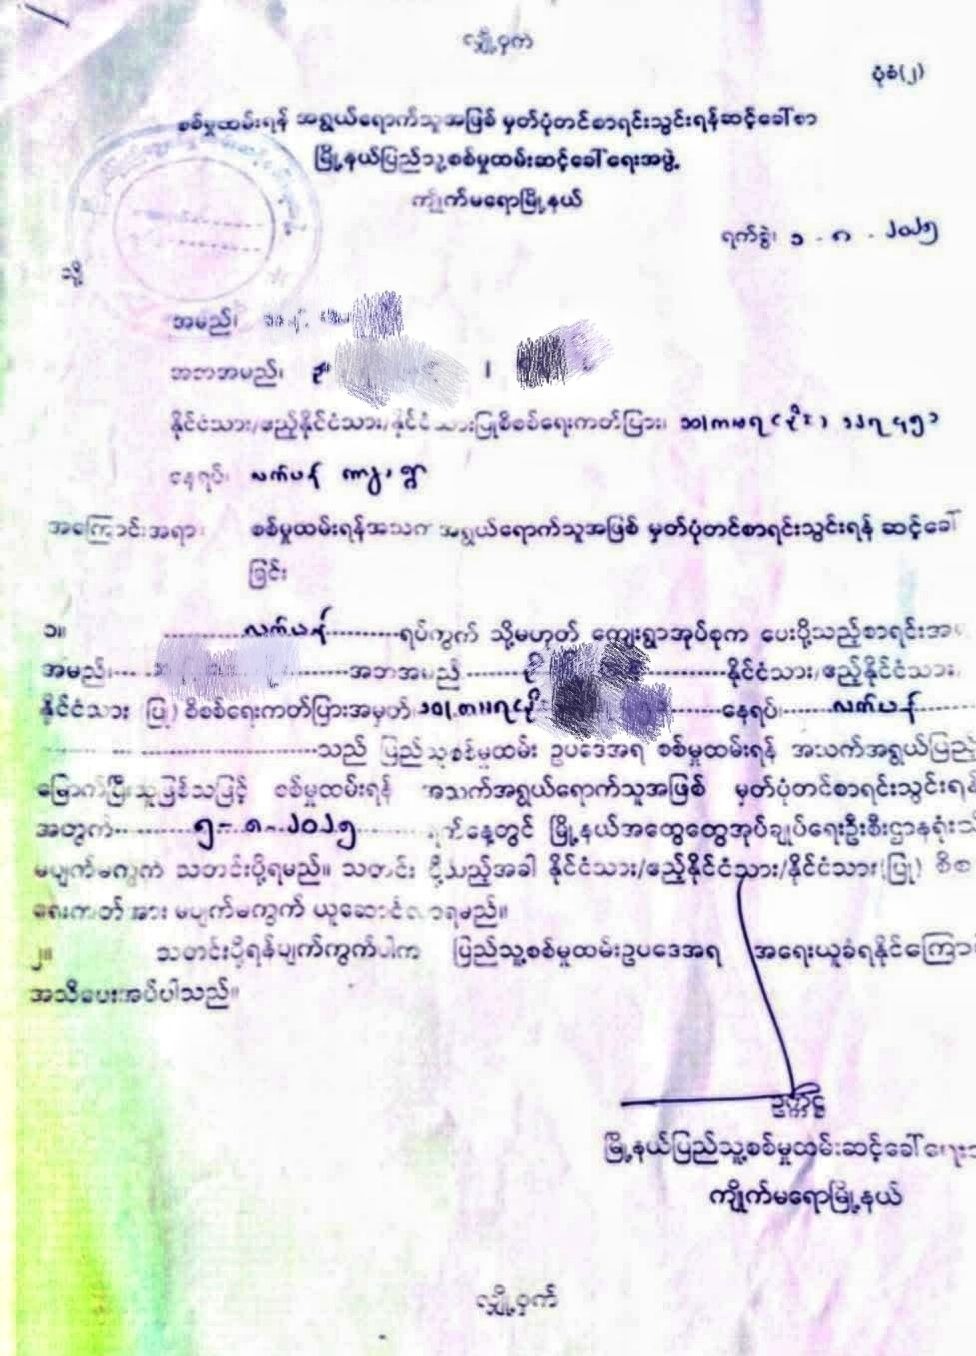 လျှို့ဝှက်
ပုံစံ(၂)
စစ်မှုထမ်းရန် အရွယ်ရောက်သူအဖြစ် မှတ်ပုံတင်စာရင်းသွင်းရန်ဆင့်ခေါ်စာ
မြို့နယ်ပြည်သူ့စစ်မှုထမ်းဆင့်ခေါ်ရေးအဖွဲ့
ကျိုက်မရောမြို့နယ်
ရက်စွဲ၊ ၁ - ၈ - ၂၀၂၅
သို့
အမည်၊
အဘအမည်၊ ဦး
နိုင်ငံသား/ဧည့်နိုင်ငံသား/နိုင်ငံသားပြုစိစစ်ရေးကတ်ပြား၊ ၁၀/ကမရ(နိုင်)
နေရပ်၊ လက်ပန် ကျေးရွာ
အကြောင်းအရာ၊ စစ်မှုထမ်းရန်အသက်အရွယ်ရောက်သူအဖြစ် မှတ်ပုံတင်စာရင်းသွင်းရန် ဆင့်ခေါ်
ခြင်း
၁။ လက်ပန် ရပ်ကွက် သို့မဟုတ် ကျေးရွာအုပ်စုက ပေးပို့သည့်စာရင်းအရ
အမည်၊ အဘအမည် ဦး နိုင်ငံသား/ဧည့်နိုင်ငံသား/
နိုင်ငံသား (ပြု) စိစစ်ရေးကတ်ပြားအမှတ် ၁၀/ကမရ(နိုင်) နေရပ်၊ လက်ပန်
သည် ပြည်သူ့စစ်မှုထမ်း ဥပဒေအရ စစ်မှုထမ်းရန် အသက်အရွယ်ပြည့်
မြောက်ပြီးသူဖြစ်သဖြင့် စစ်မှုထမ်းရန် အသက်အရွယ်ရောက်သူအဖြစ် မှတ်ပုံတင်စာရင်းသွင်းရန်
အတွက် ၅-၈-၂၀၂၅ ရက်နေ့တွင် မြို့နယ်အထွေထွေအုပ်ချုပ်ရေးဦးစီးဌာနရုံးသို့
မပျက်မကွက် သတင်းပို့ရမည်။ သတင်းပို့သည့်အခါ နိုင်ငံသား/ဧည့်နိုင်ငံသား/နိုင်ငံသား(ပြု) စိစစ်
ရေးကတ်အား မပျက်မကွက် ယူဆောင်လာရမည်။
၂။ သတင်းပို့ရန်ပျက်ကွက်ပါက ပြည်သူ့စစ်မှုထမ်းဥပဒေအရ အရေးယူခံရနိုင်ကြောင်း
အသိပေးအပ်ပါသည်။
ဥက္ကဋ္ဌ
မြို့နယ်ပြည်သူ့စစ်မှုထမ်းဆင့်ခေါ်ရေး
ကျိုက်မရောမြို့နယ်
လျှို့ဝှက်